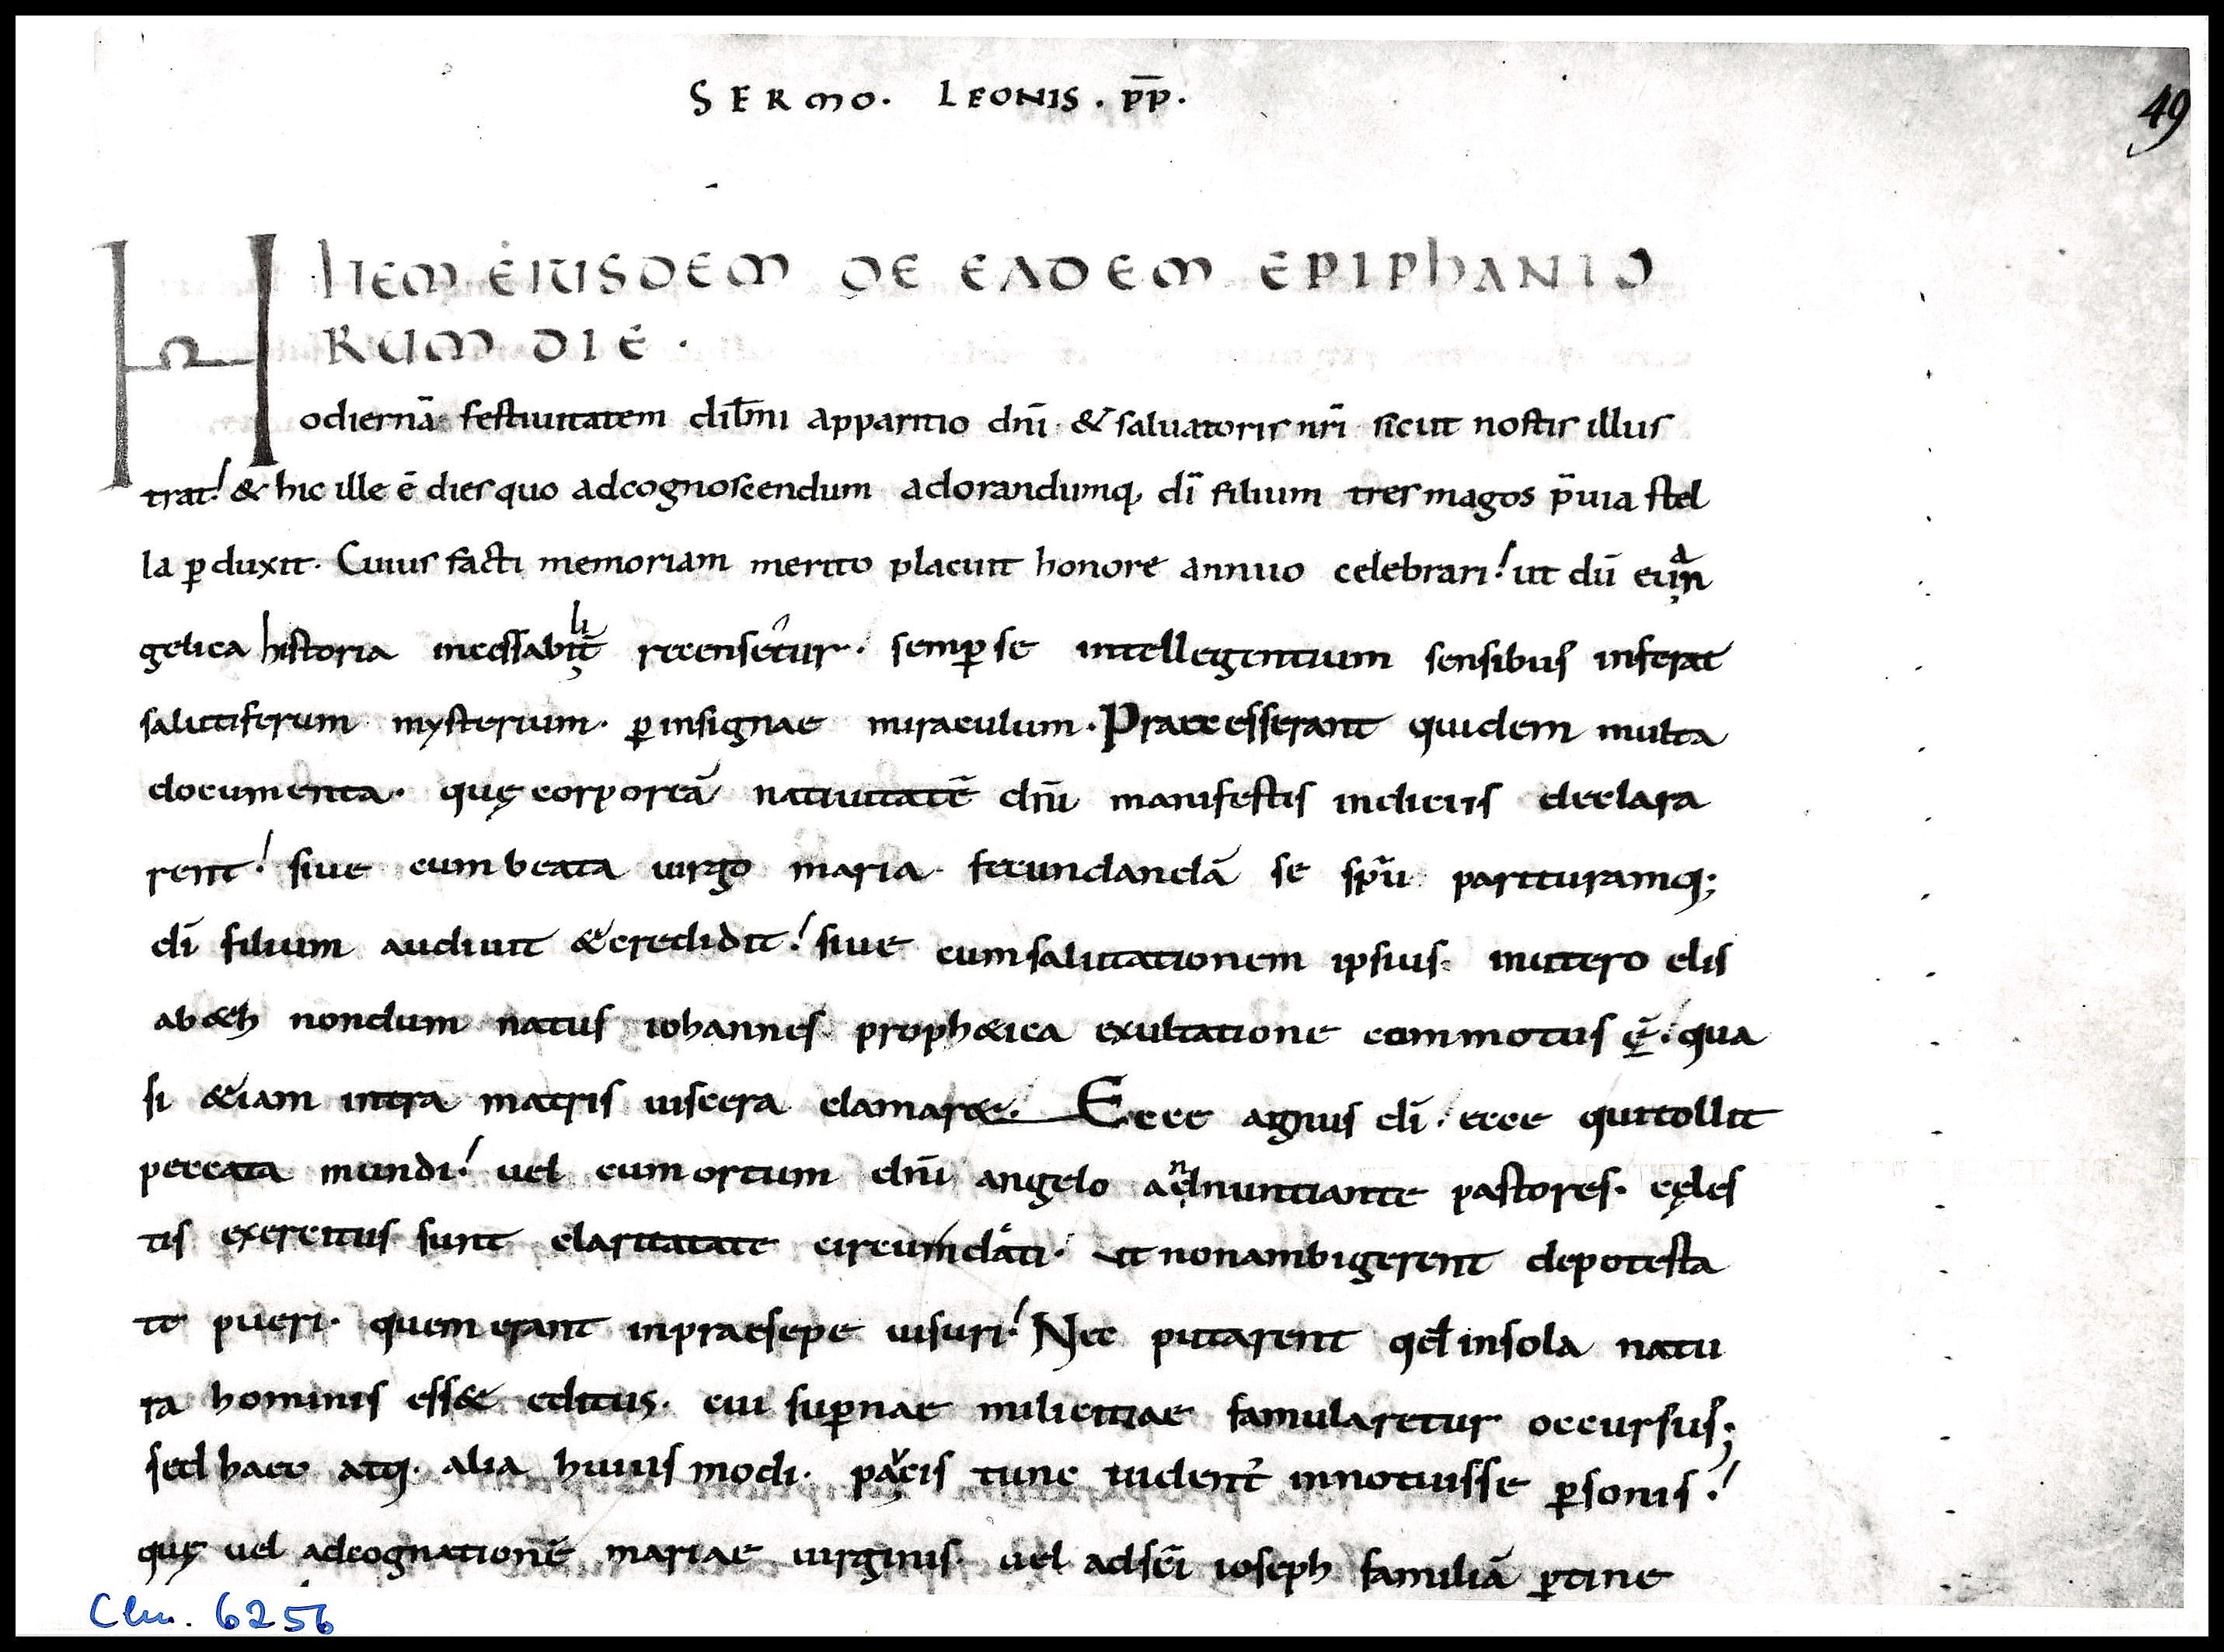 SERMO. LEONIS. p̄p̄.
49
ITEM EIUSDEM DE EADEM EPIPHANIO
RUM DIE.
Hodiernā festiuitatem dil̄mi apparitio dn̄i & saluatoris nr̄i sicut nostis illus
trat! & hic ille ē dies quo adcognoscendum adorandumq, dī filium tres magos p̄uia stel
la ꝑduxit. Cuius facti memoriam merito placuit honore annuo celebrari! ut dū euan
gelica historia incessabilit̄ recensetur. sempꝑ se intellegentium sensibus inferat
salutiferum mysterium. ꝑ insignae miraculum. Praecesserant quidem multa
documenta. quę corporeā natiuitatē dn̄i manifestis indiciis declara
rent! siue cum beata uirgo maria fecundandā se sp̄u parituramq;
dī filium audiuit & credidit! siue cum salutationem ipsius. inutero elis
ab&h nondum natus iohannes proph&ica exultatione commotus ē. qua
si &iam intra matris uiscera clamar&. Ecce agnus dī. ecce quitollit
peccata mundi! uel cum ortum dn̄i angelo adnnuntiante pastores. cęles
tis exercitus sunt claritatate circumdati. ut nonambigerent depotesta
te pueri. quem erant inpraesepe uisuri! Nec putarent qd̄ insola natu
ra hominis ess& editus. cui suꝑnae milicitiae famularetur occursus;
sed haec atq. alia huius modi. paucis tunc uident̄ innotuisse ꝑsonis!
quę uel adcognationē mariae uirginis. uel ads̄ci ioseph familiā ꝑtine
Clm. 6256